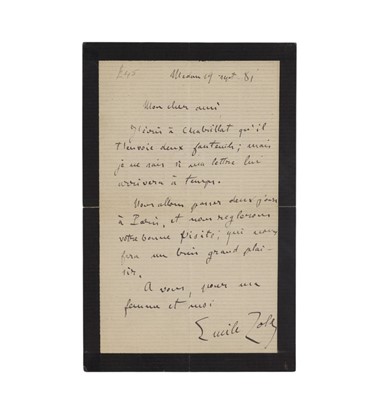 Medan 19 sept. 81
Mon cher ami
J'écris à Chabrillat qu'il
t'envoie deux fauteuils; mais
je ne sais si ma lettre lui
arrivera à temps.
Nous allons passer deux jours
à Paris, et nous reglerons
votre bonne visite; qui nous
fera un bien grand plai-
sir.
A vous, pour ma
femme et moi
Emile Zola